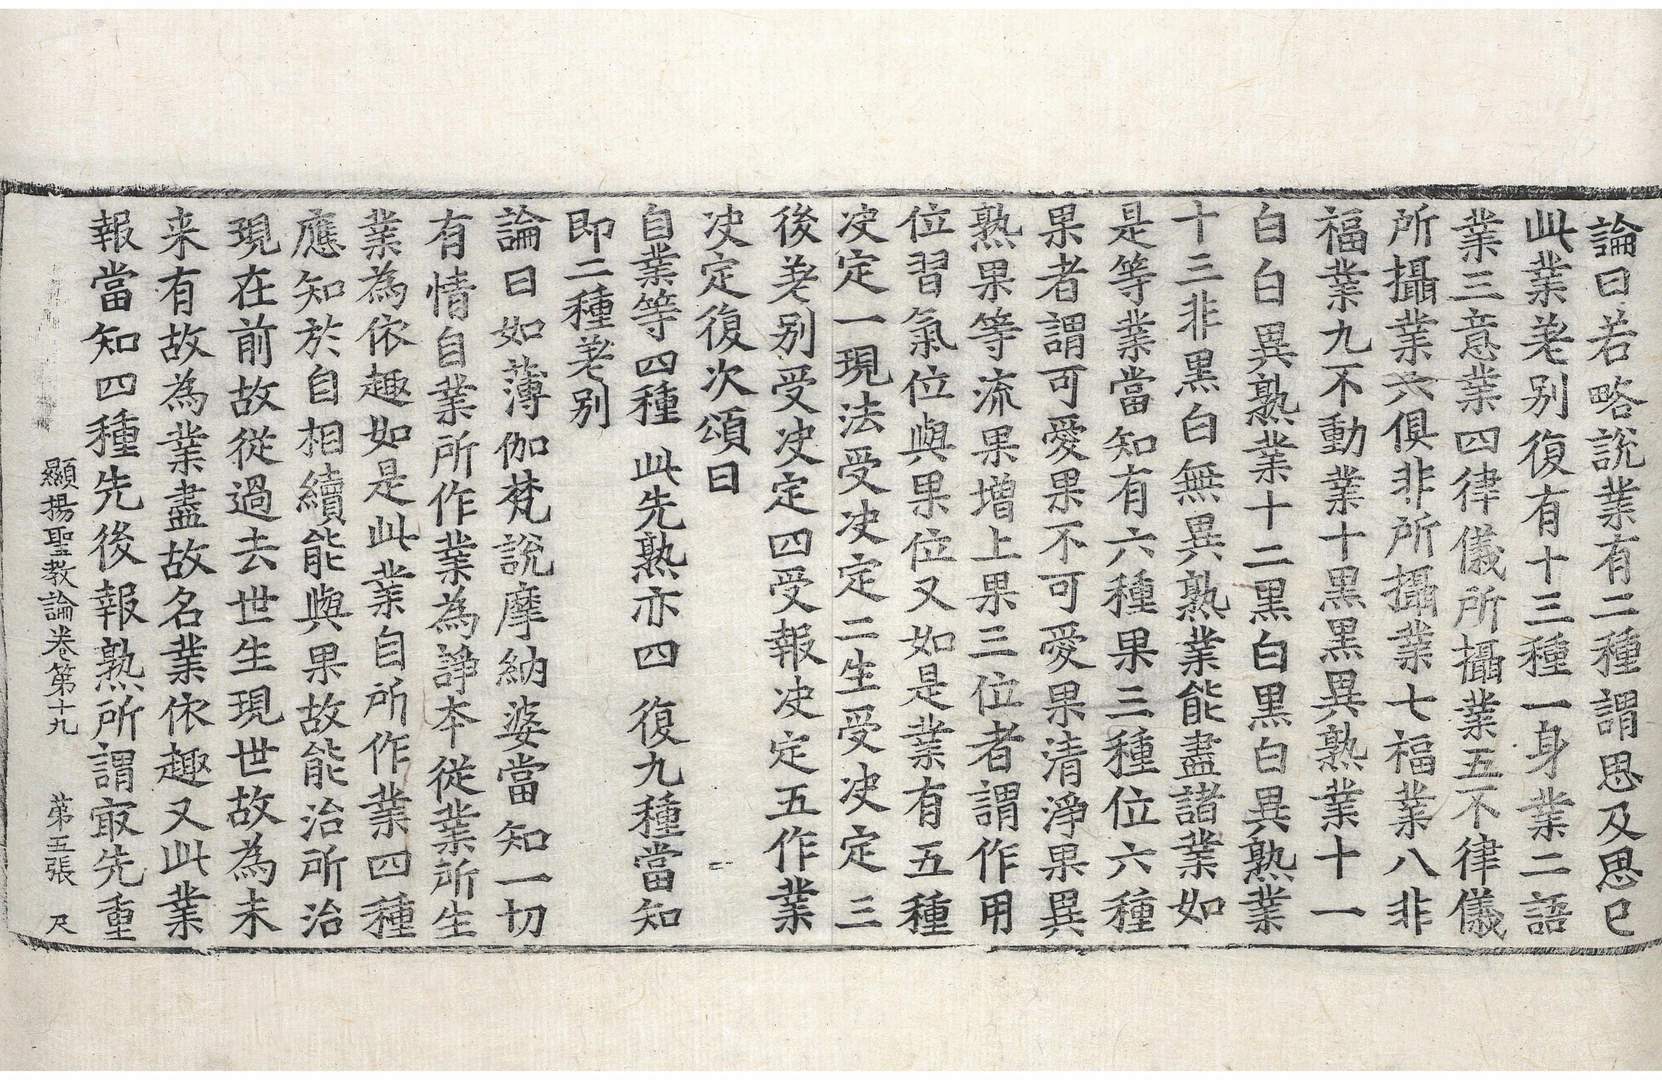 論曰若略說業有二種謂思及思已
此業差別復有十三種一身業二語
業三意業四律儀所攝業五不律儀
所攝業六俱非所攝業七福業八非
福業九不動業十黑黑異熟業十一
白白異熟業十二黑白黑白異熟業
十三非黑白無異熟業能盡諸業如
是等業當知有六種果三種位六種
果者謂可愛果不可愛果清淨果異
熟果等流果增上果三位者謂作用
位習氣位與果位又如是業有五種
决定一現法受决定二生受决定三
後差別受决定四受報决定五作業
决定復次頌曰
自業等四種 此先熟亦四 復九種當知
即二種差別
論曰如薄伽梵說摩納婆當知一切
有情自業所作業為諍本從業所生
業為依趣如是此業自所作業四種
應知於自相續能與果故能治所治
現在前故從過去世生現世故為未
来有故為業盡故名業依趣又此業
報當知四種先後報熟所謂㝡先重
顯揚聖教論卷第十九 第五張 尺